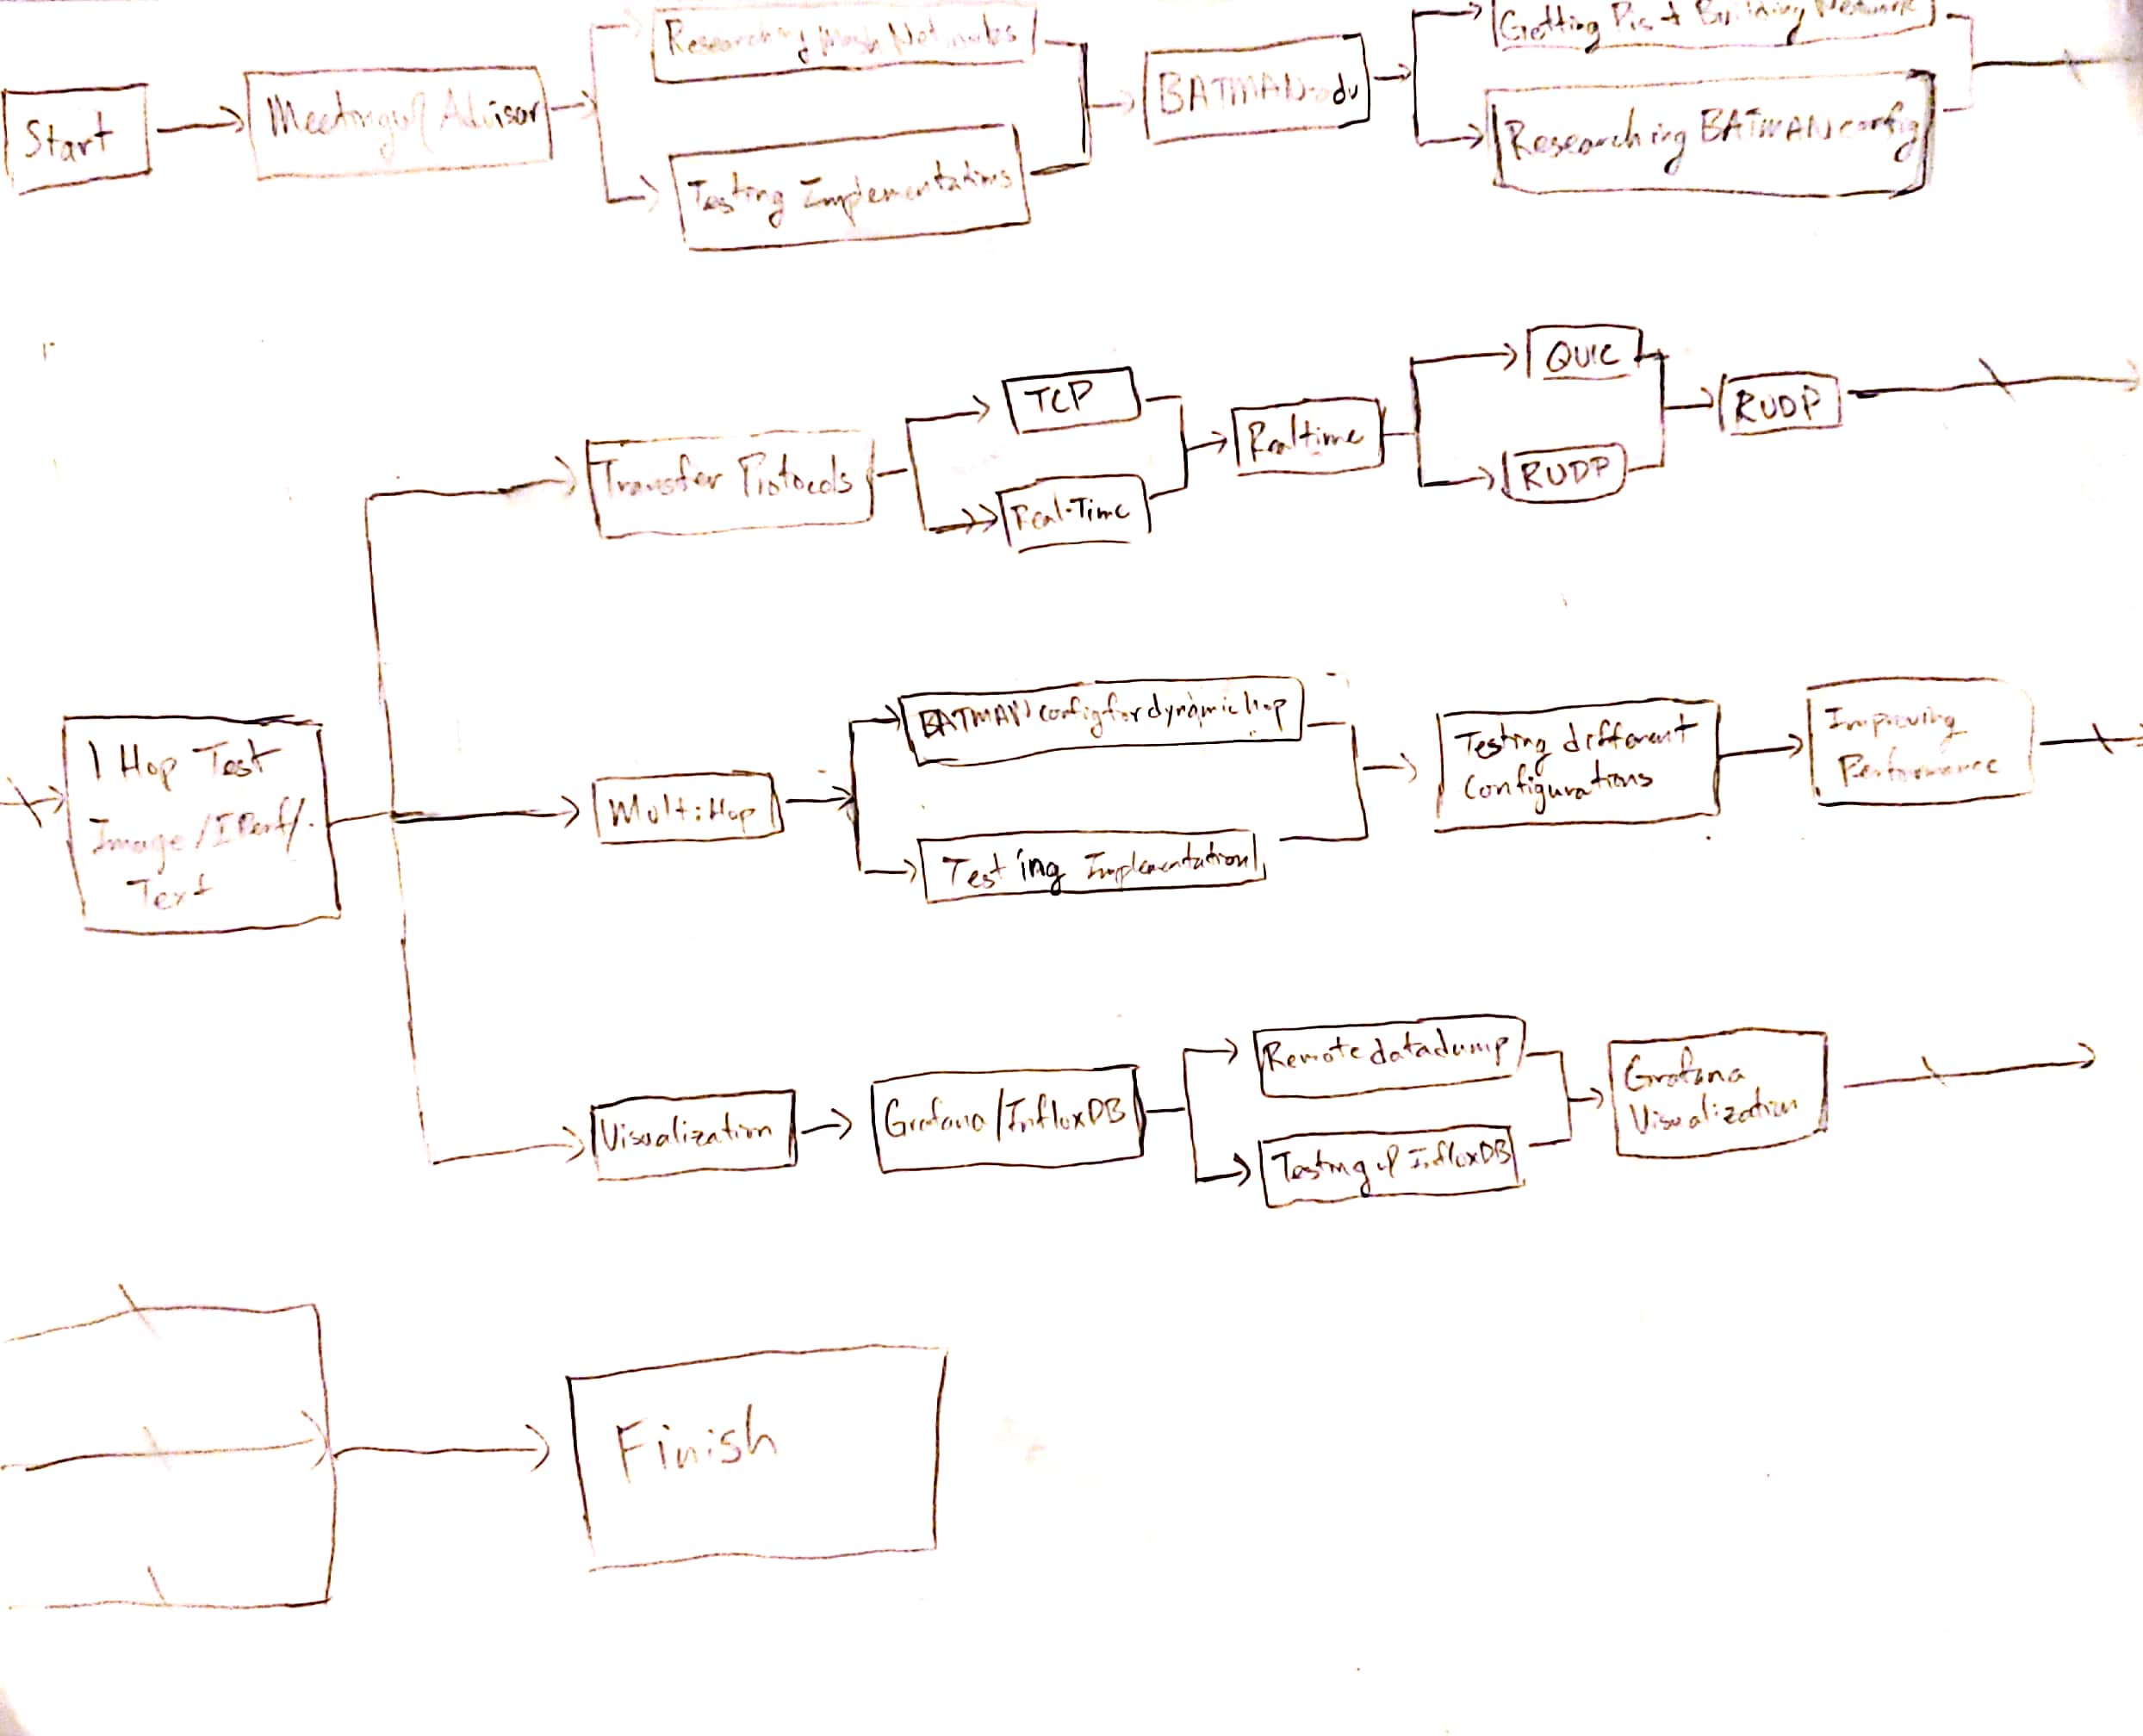 Start
Meeting w/ Advisor
Researching Mesh Networks
Testing Implementations
BATMAN-adv
Getting Pis + Building Network
Researching BATMAN config
Transfer Protocols
TCP
Real-Time
Realtime
QUIC
RUDP
RUDP
1 Hop Test
Image/IPerf/
Text
Multi Hop
BATMAN config for dynamic hop
Testing Implementation
Testing different
Configurations
Improving
Performance
Visualization
Grafana/InfluxDB
Remote datadump
Testing w/ InfluxDB
Grafana
Visualization
Finish